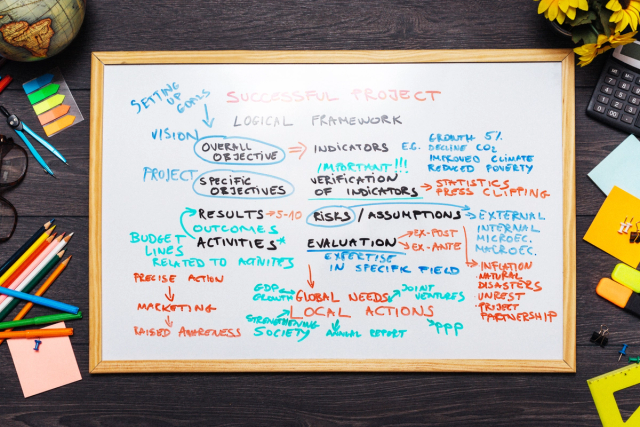 SETTING UP GOALS
SUCCESSFUL PROJECT
LOGICAL FRAMEWORK
VISION
OVERALL OBJECTIVE
INDICATORS
E.G.
GROWTH 5%
DECLINE CO2
IMPROVED CLIMATE
REDUCED POVERTY
PROJECT
SPECIFIC OBJECTIVES
IMPORTANT!!!
VERIFICATION OF INDICATORS
STATISTICS
PRESS CLIPPING
RESULTS
5-10
OUTCOMES
ACTIVITIES*
RISKS / ASSUMPTIONS
EXTERNAL
INTERNAL
MICROEC.
MACROEC.
BUDGET
LINES
RELATED TO ACTIVITES
EVALUATION
EX-POST
EX-ANTE
EXPERTISE
IN SPECIFIC FIELD
INFLATION
NATURAL
DISASTERS
UNREST
PROJECT
PARTNERSHIP
PRECISE ACTION
MARKETING
RAISED AWARENESS
GDP
GROWTH
GLOBAL NEEDS
LOCAL ACTIONS
JOINT
VENTURES
STRENGTHENING
SOCIETY
ANNUAL REPORT
PPP